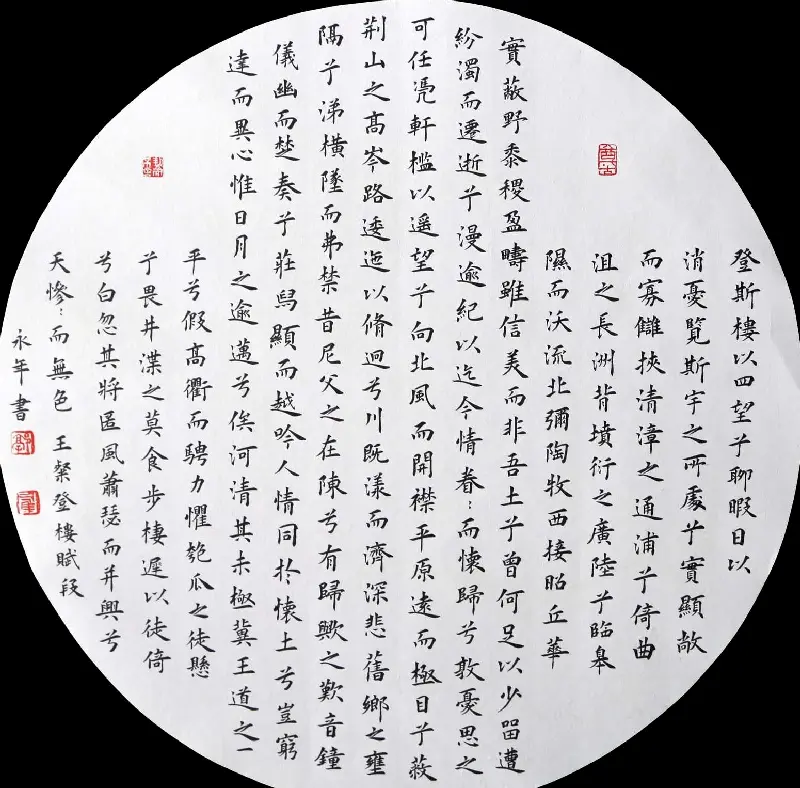 登斯樓以四望兮聊暇日以
消憂覽斯宇之所處兮實顯敞
而寡讎挾清漳之通浦兮倚曲
沮之長洲背墳衍之廣陸兮臨皋
隰而沃流北彌陶牧西接昭丘華
實蔽野黍稷盈疇雖信美而非吾土兮曾何足以少留遭
紛濁而遷逝兮漫逾紀以迄今情眷：而懷歸兮孰憂思之
可任凭軒檻以遥望兮向北風而開襟平原遠而極目兮蔽
荆山之高岑路逶迤以脩迥兮川既漾而濟深悲舊鄉之壅
隔兮涕橫墜而弗禁昔尼父之在陳兮有歸歟之歎音鐘
儀幽而楚奏兮莊舄顯而越吟人情同於懷土兮豈窮
達而異心惟日月之逾邁兮俟河清其未極冀王道之一
平兮假高衢而騁力懼匏瓜之徒懸
兮畏井渫之莫食步棲遲以徙倚
兮白忽其將匿風蕭瑟而并興兮
天慘：而無色 王粲登樓賦段
永年書